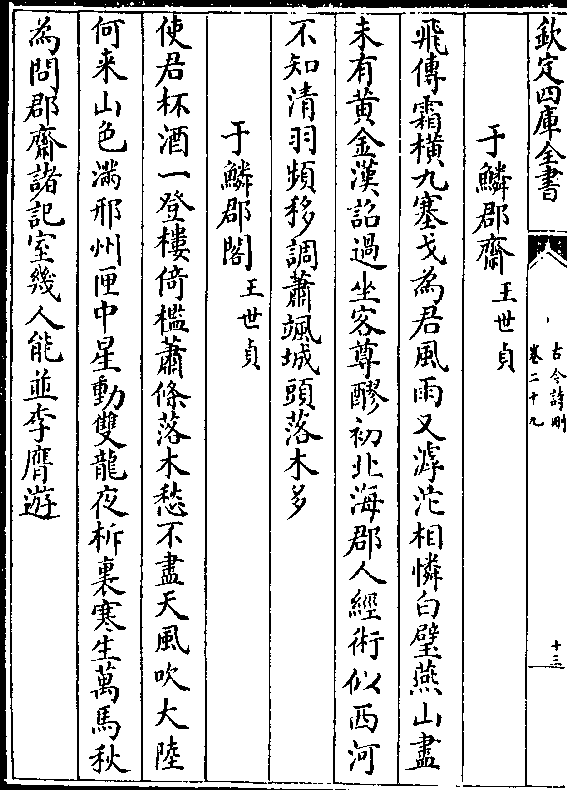 欽定四庫全書
古今詩刪
卷二十九
十三
于鱗郡齋王世貞
飛傳霜橫九塞戈為君風雨又滹沱相憐白璧燕山盡
未有黃金漢詔過坐客尊醪初北海郡人經術似西河
不知清羽頻移調蕭颯城頭落木多
于鱗郡閣王世貞
使君杯酒一登樓倚檻蕭條落木愁不盡天風吹大陸
何來山色滿邢州匣中星動雙龍夜柝裏寒生萬馬秋
為問郡齋諸記室幾人能並李膺遊